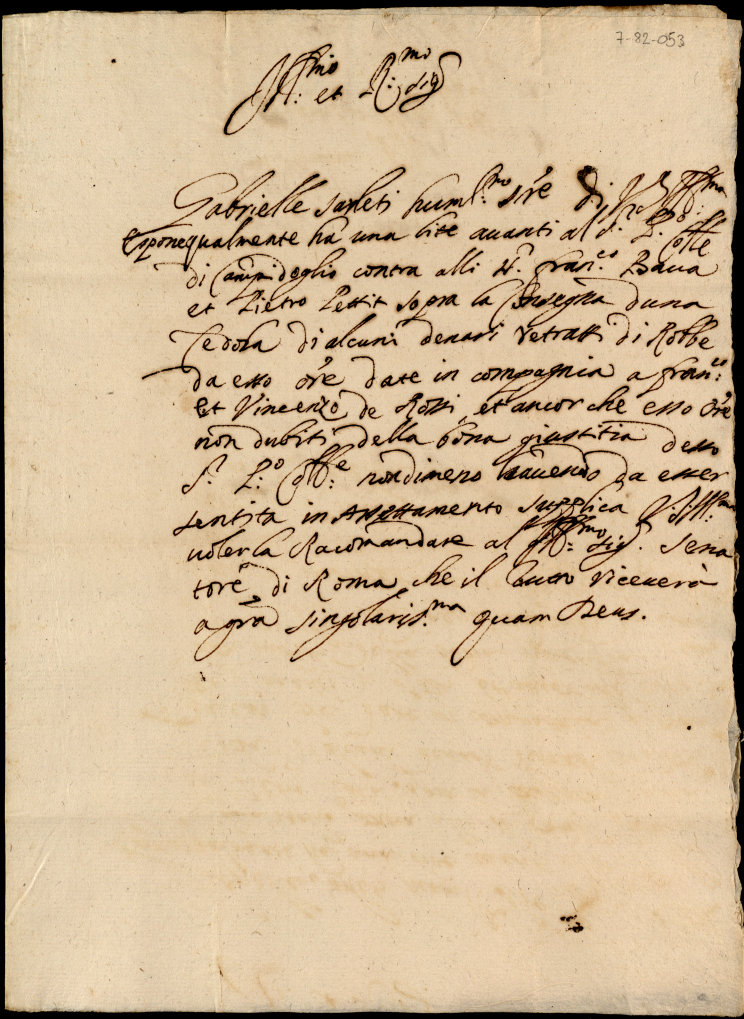 7-82-053
Ill:mo et R:mo Sig
Gabrielle sarleti huml:mo s're di V. S. Ill:ma
Espone qualmente ha una lite avanti al S.r P.o Colle
di Campideglio contra alli ss.ri fran:co Bava
et Pietro Pettit sopra la Consegna duna
Cedola di alcuni denari retratti di Robbe
da esso ore date in compagnia a fran:co
et Vincenzo de Rossi, et ancor che esso ore
non dubiti della bona giustitia desso
S.r P.o Coll:e nondimeno havendo da esser
sentita in Assettamento supplica V.S. Ill:ma
volerla Racomandare al Ill:mo Sig.r Sena
tore di Roma che il tutto ricevera
a gra singolariss.ma quam Deus.